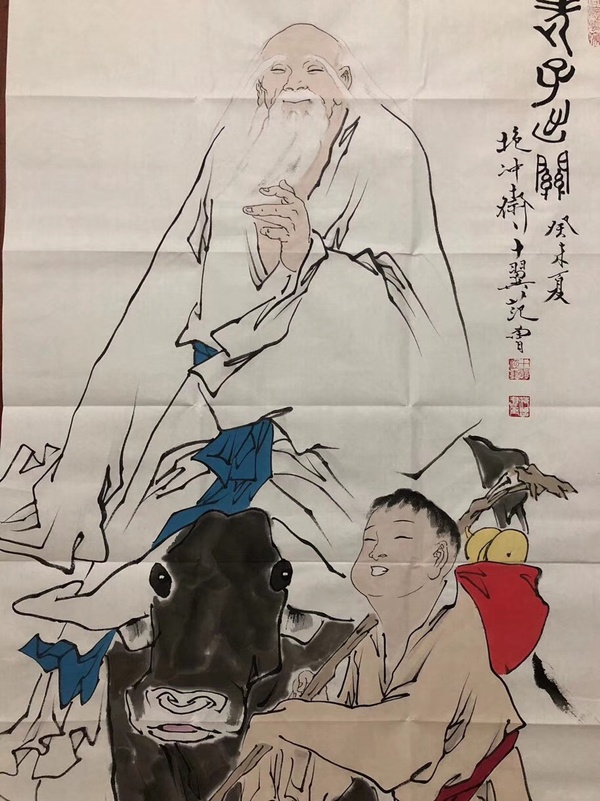 老子出關
癸未夏
抱冲齋十翼范曾